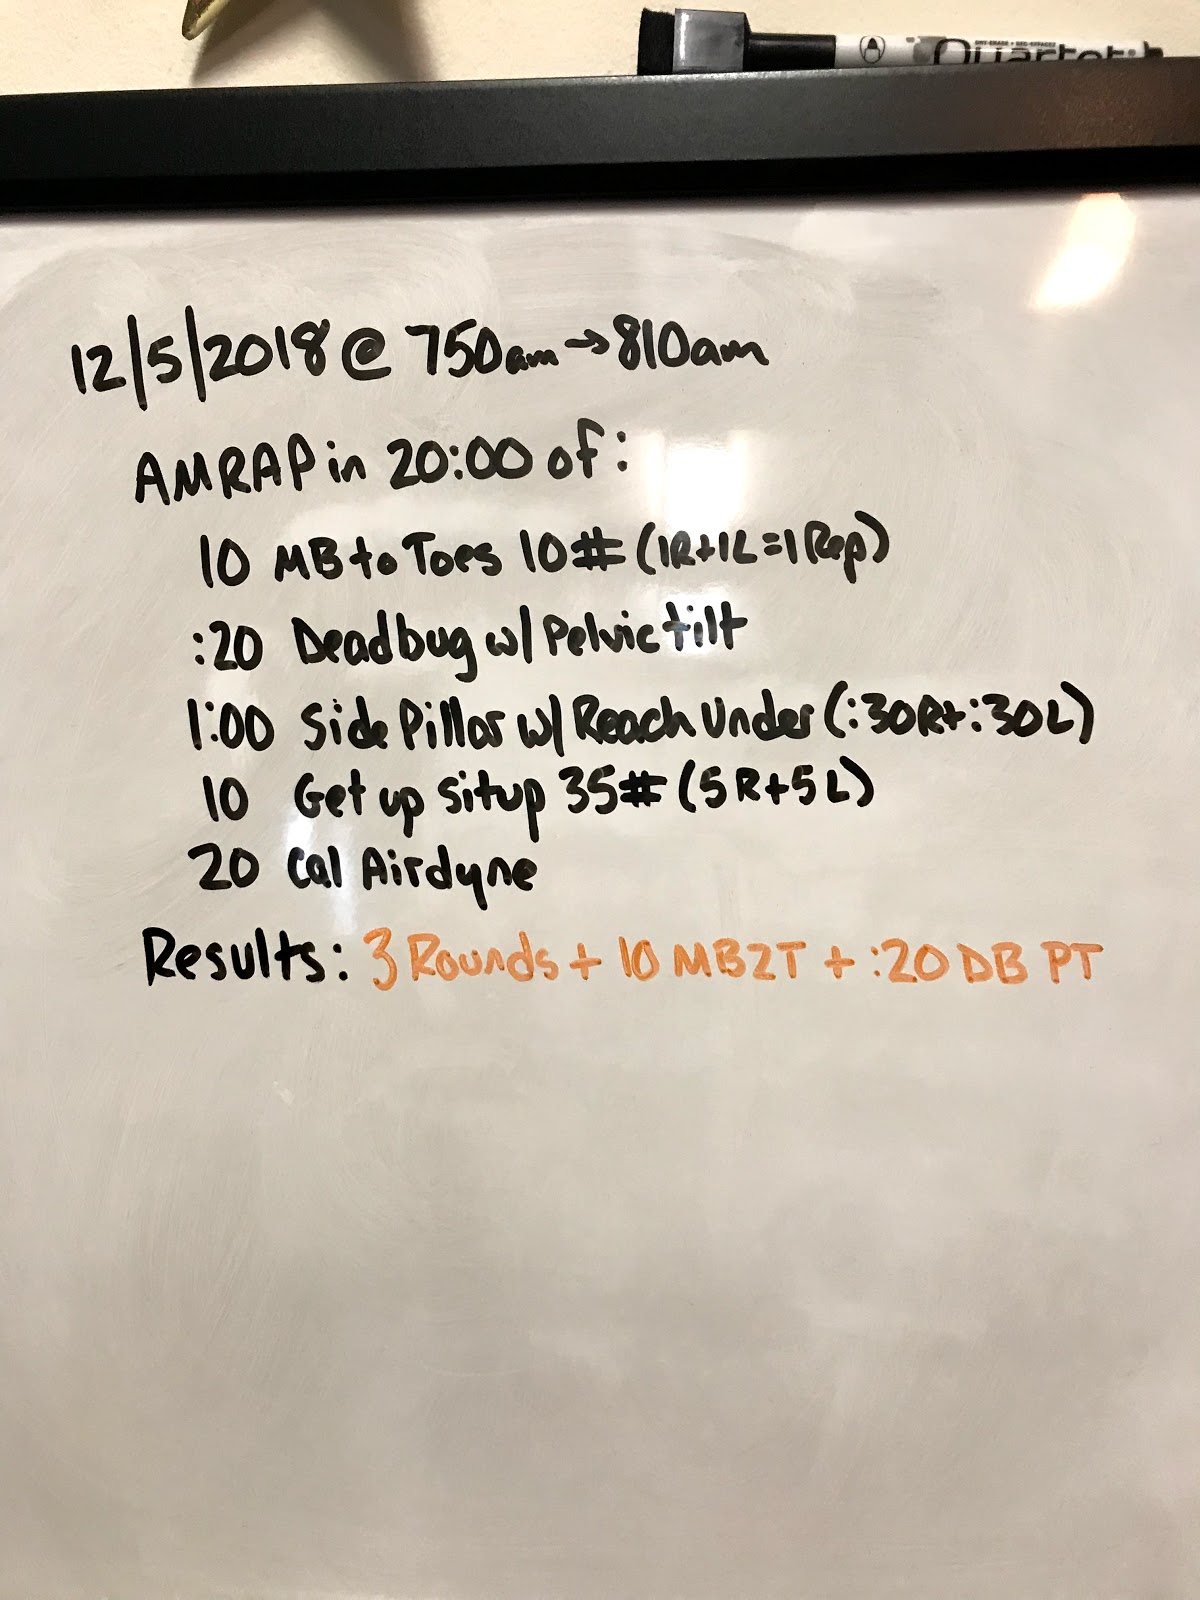 Quartet
12/5/2018 @ 750am → 810am
AMRAP in 20:00 of:
10 MB to Toes 10# (1R+1L=1Rep)
:20 Deadbug w/ Pelvic tilt
1:00 Side Pillar w/ Reach Under (:30R+:30L)
10 Get up Situp 35# (5R+5L)
20 Cal Airdyne
Results: 3 Rounds + 10 MB2T + :20 DB PT